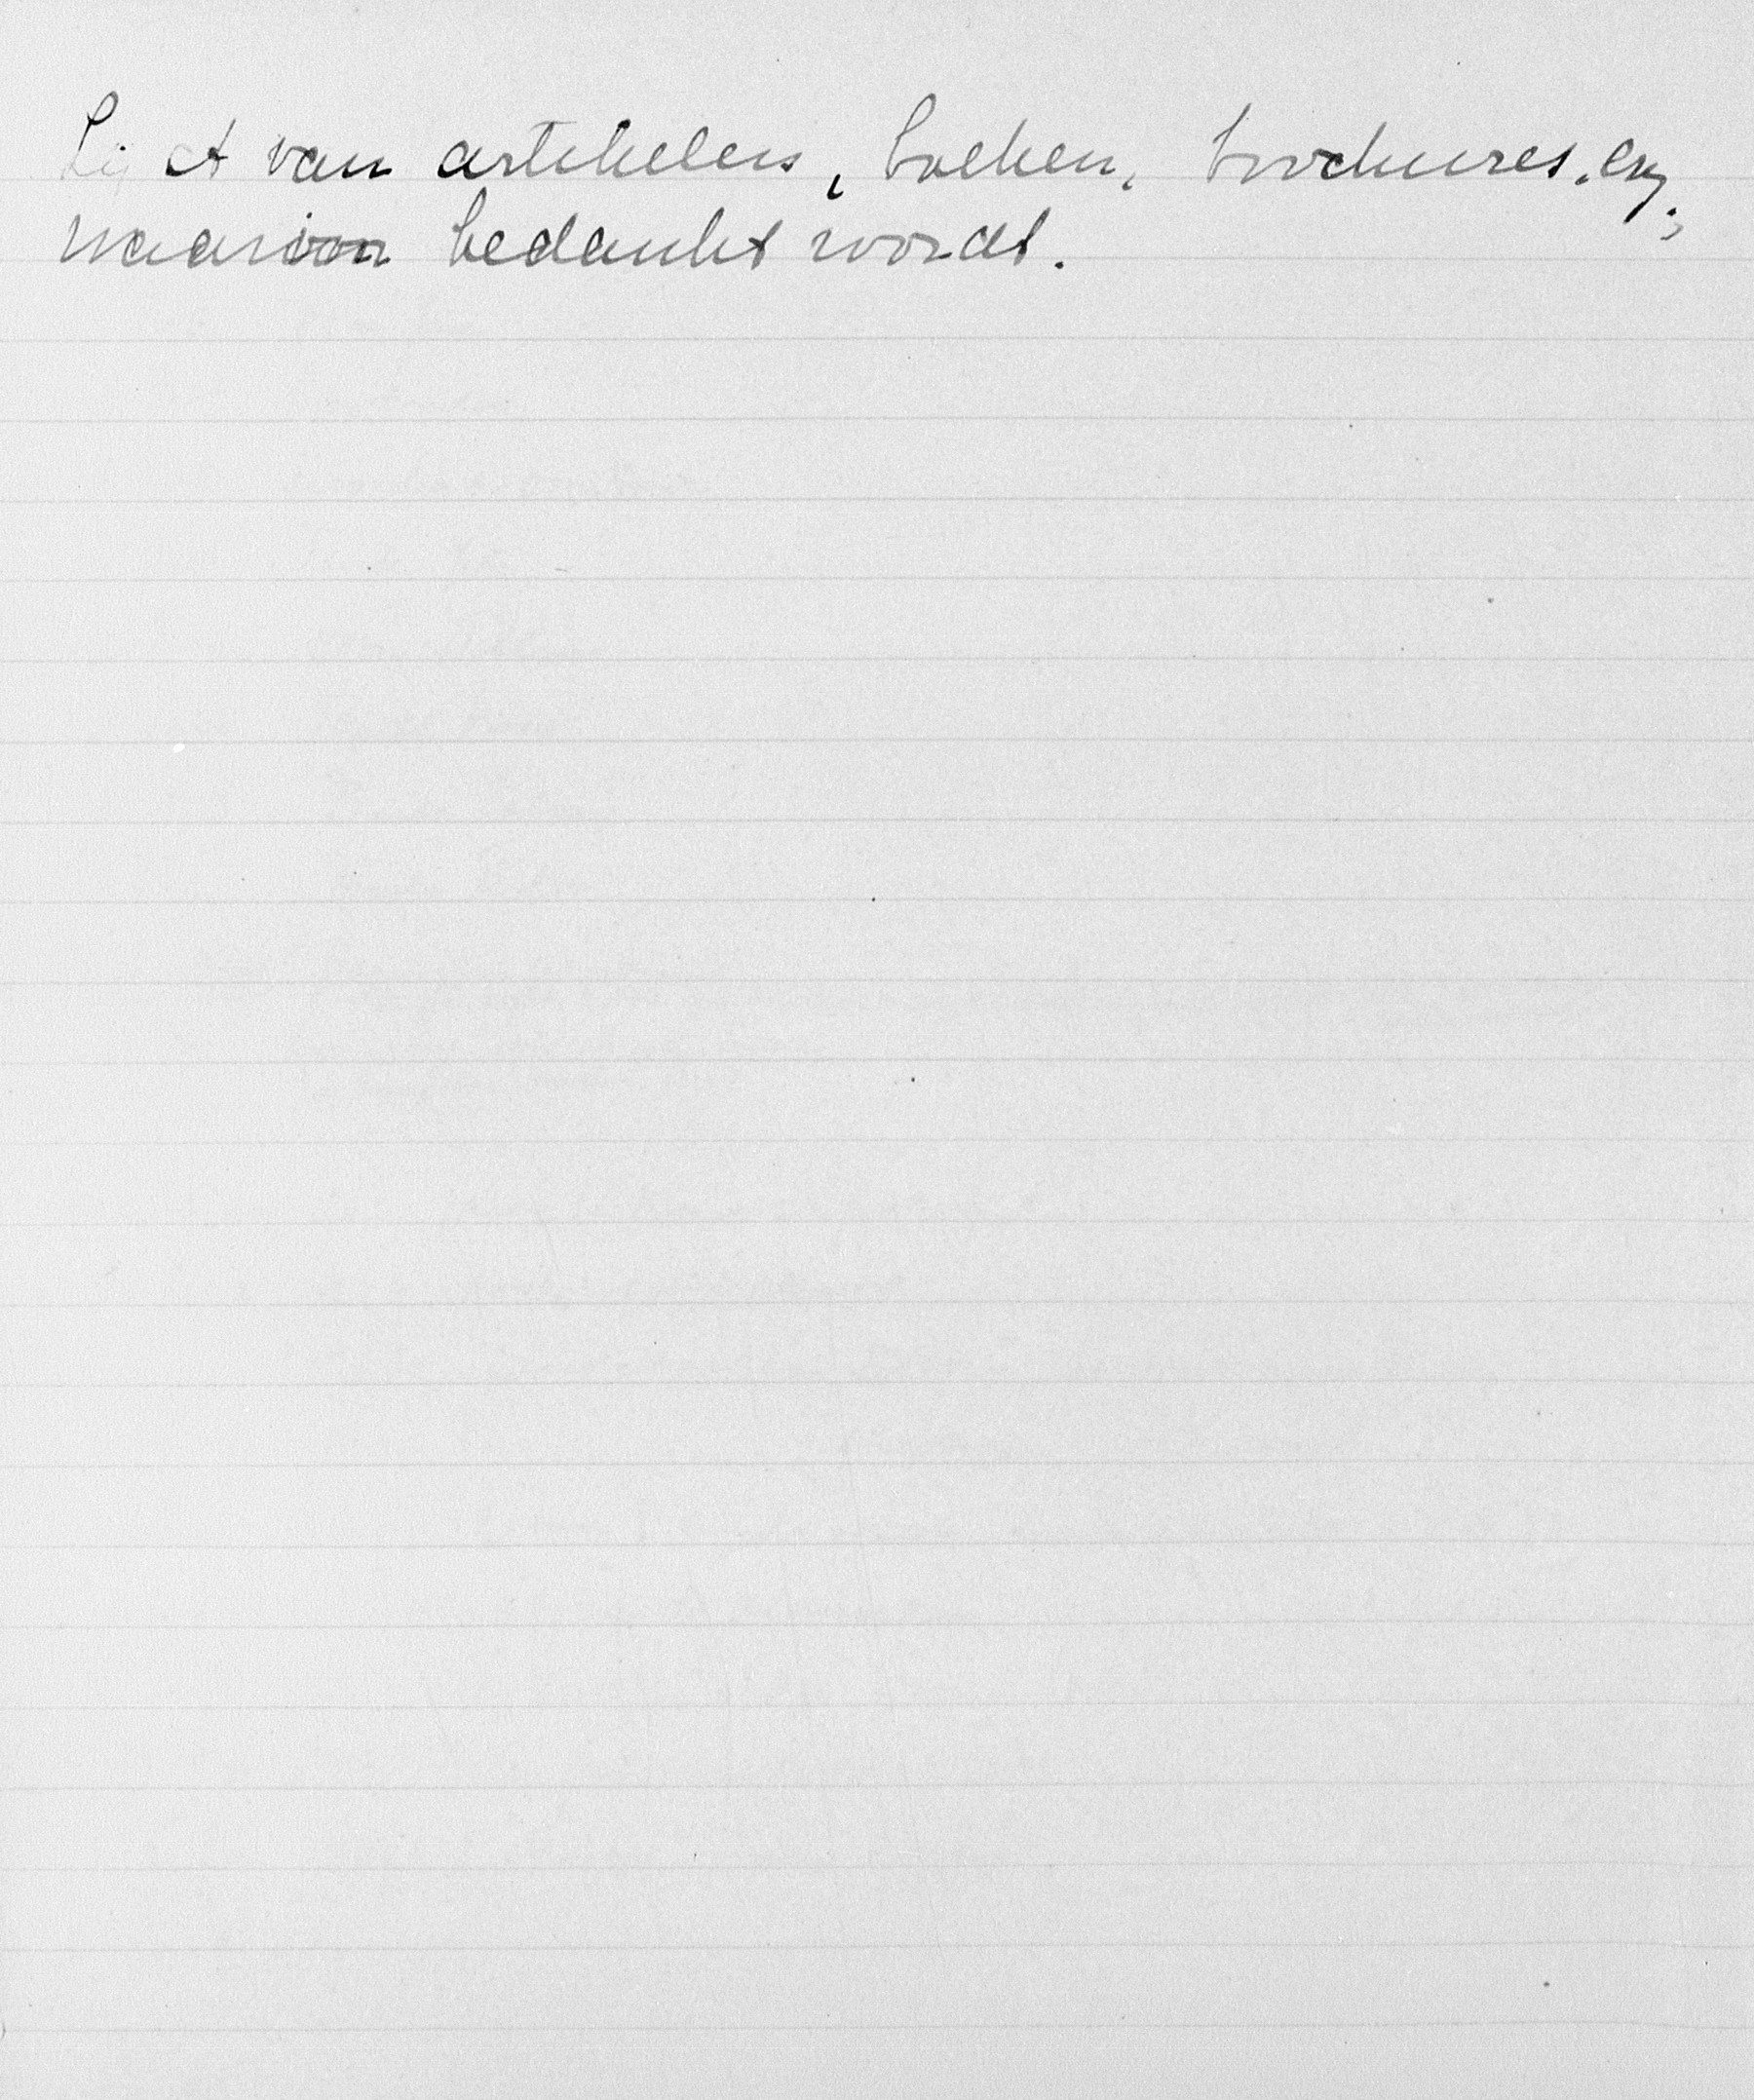 Lijst van artikelen, boeken, brochures, enz.,
waarvan bedankt wordt.